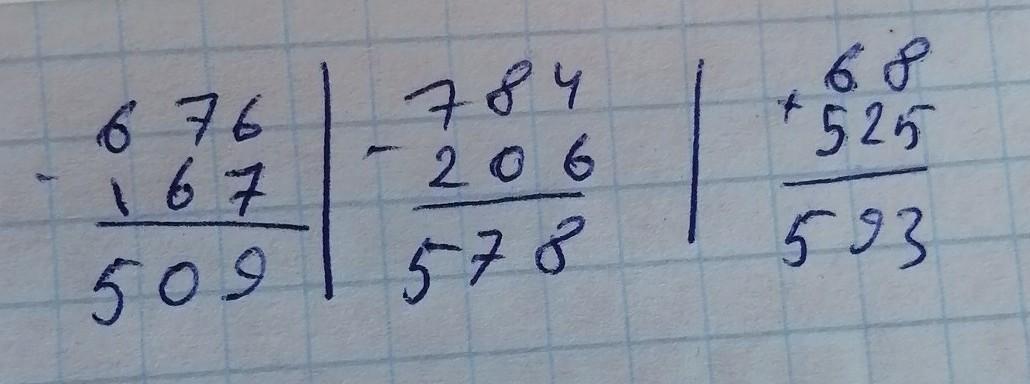 676
- 167
509
784
- 206
578
68
+ 525
593